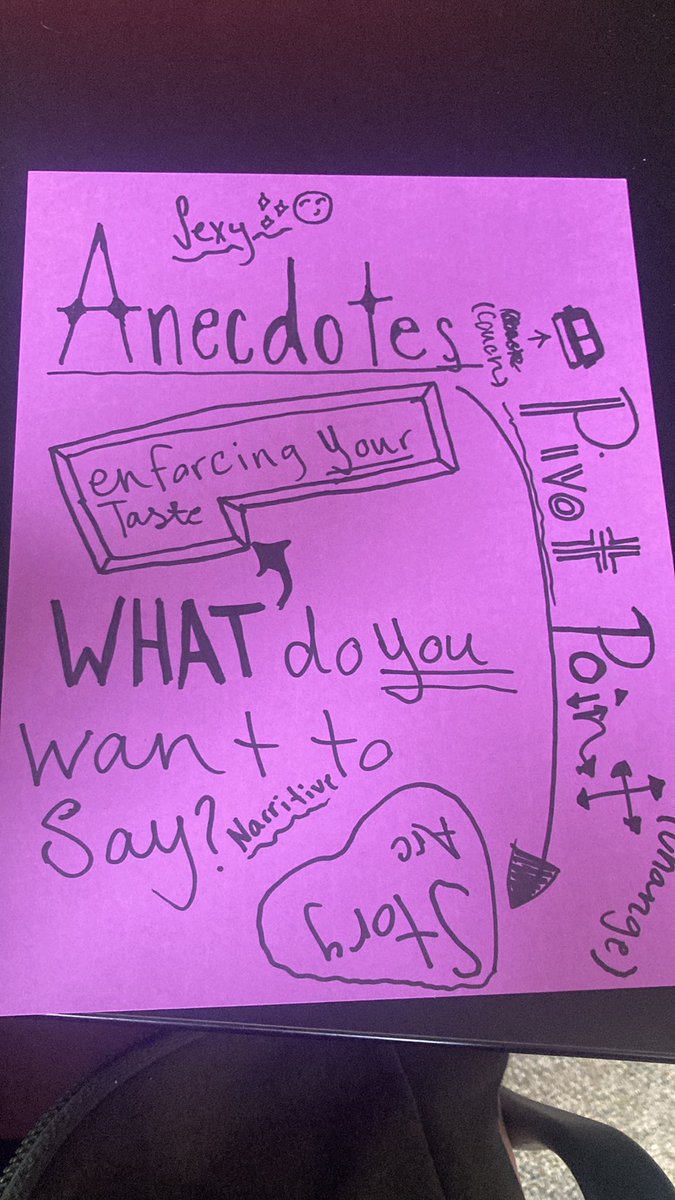 Sexy
Anecdotes
enforcing your
Taste
WHAT do you
want to
Say?
Narritive
Story
Arc
(couch)
Pivot
Point
(change)